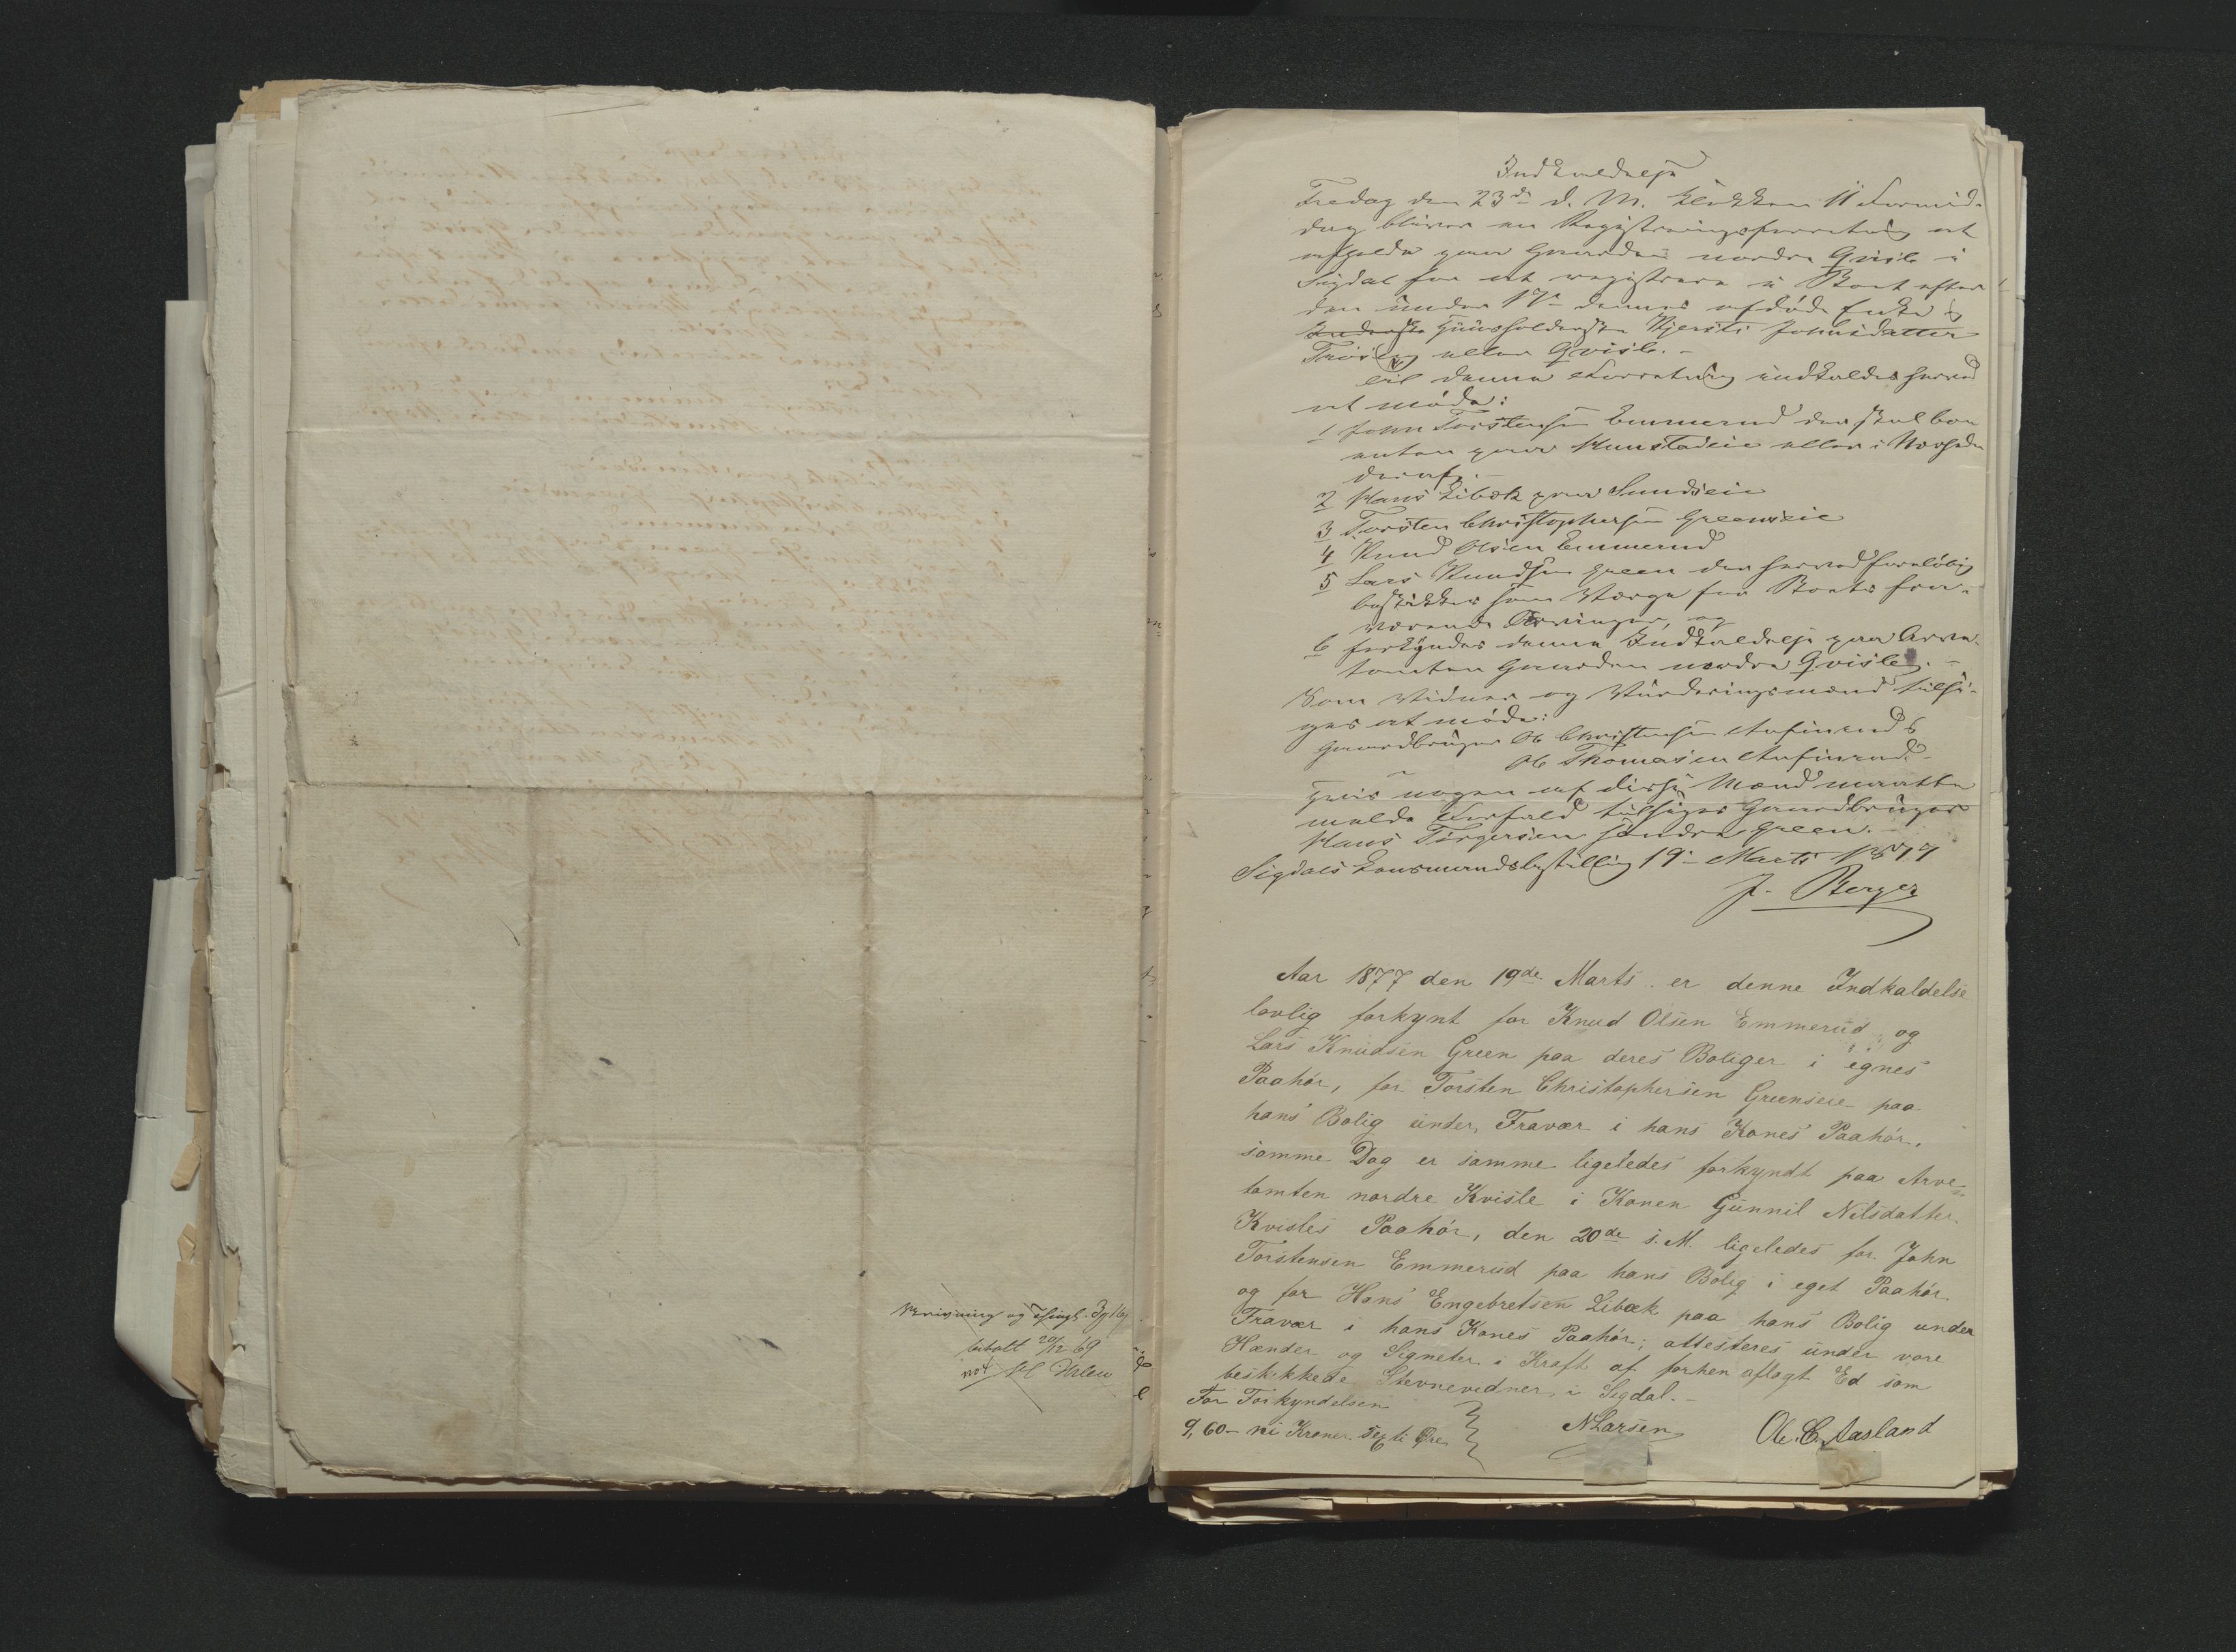 betalt 20/12 69
Indkaldelse
Fredag den 23de d. M. Klokken 11 Formid-
dag bliver en Registreringsforretning at
afholde paa Gaarden nordre Qvisle i
Sigdal for at registrere i Boet efter
den under 17de dennes afdøde Enke
Huusholderske Kjersti Johnsdatter
eller Qvisle. -
til denne Forretning indkaldes herved
at møde:
1 John Torstensen Emmerud der skal bo
enten paa eller i Nærheden
deraf. -
2 Hans Libæk paa Sundseie
3 Torsten Christophersen Greenseie
4 Knud Olsen Emmerud
5 Lars Knudsen Green der herved foreløbig
beskikkes som Værge for Boets fra-
værende Arvinger, og
6 forkyndes denne Indkaldelse paa Arve-
tomten Gaarden nordre Qvisle. -
Som Vidner og Vurderingsmænd tilsi-
ges at møde:
Gaardbruger Ole Christensen
Ole Thomasen
Hvis nogen af disse Mænd maatte
melde Forfald tilsiges Gaardbruger
Hans Torgersen søndre Green. -
Sigdals Lensmandsbestilling 19de Marts 1877
J. Berger
Aar 1877 den 19de Marts er denne Indkaldelse
lovlig forkynt for Knud Olsen Emmerud og
Lars Knudsen Green paa deres Boliger i egnes
Paahør, for Torsten Christophersen Greenseie paa
hans Bolig under Fravær i hans Kones Paahør.
samme Dag er samme ligeledes forkyndt paa Arve-
tomten nordre Kvisle i Konen Gunnil Nilsdatter
Kvisles Paahør, den 20de s. M. ligeledes for John
Torstensen Emmerud paa hans Bolig i eget Paahør
og for Hans Engebretsen Libæk paa hans Bolig under
Fravær i hans Kones Paahør; attesteres under vore
Hænder og Signeter i Kraft af forhen aflagt Ed som
beskikkede Stevnevidner i Sigdal. -
For Forkyndelsen
9,60 - ni Kroner sexti Øre
N Larsen
Ole. C. Aasland